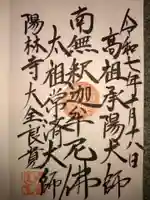 令和七年十月十八日
高祖承陽大師
南無釋迦牟尼佛
太祖常済大師
陽林寺大全良